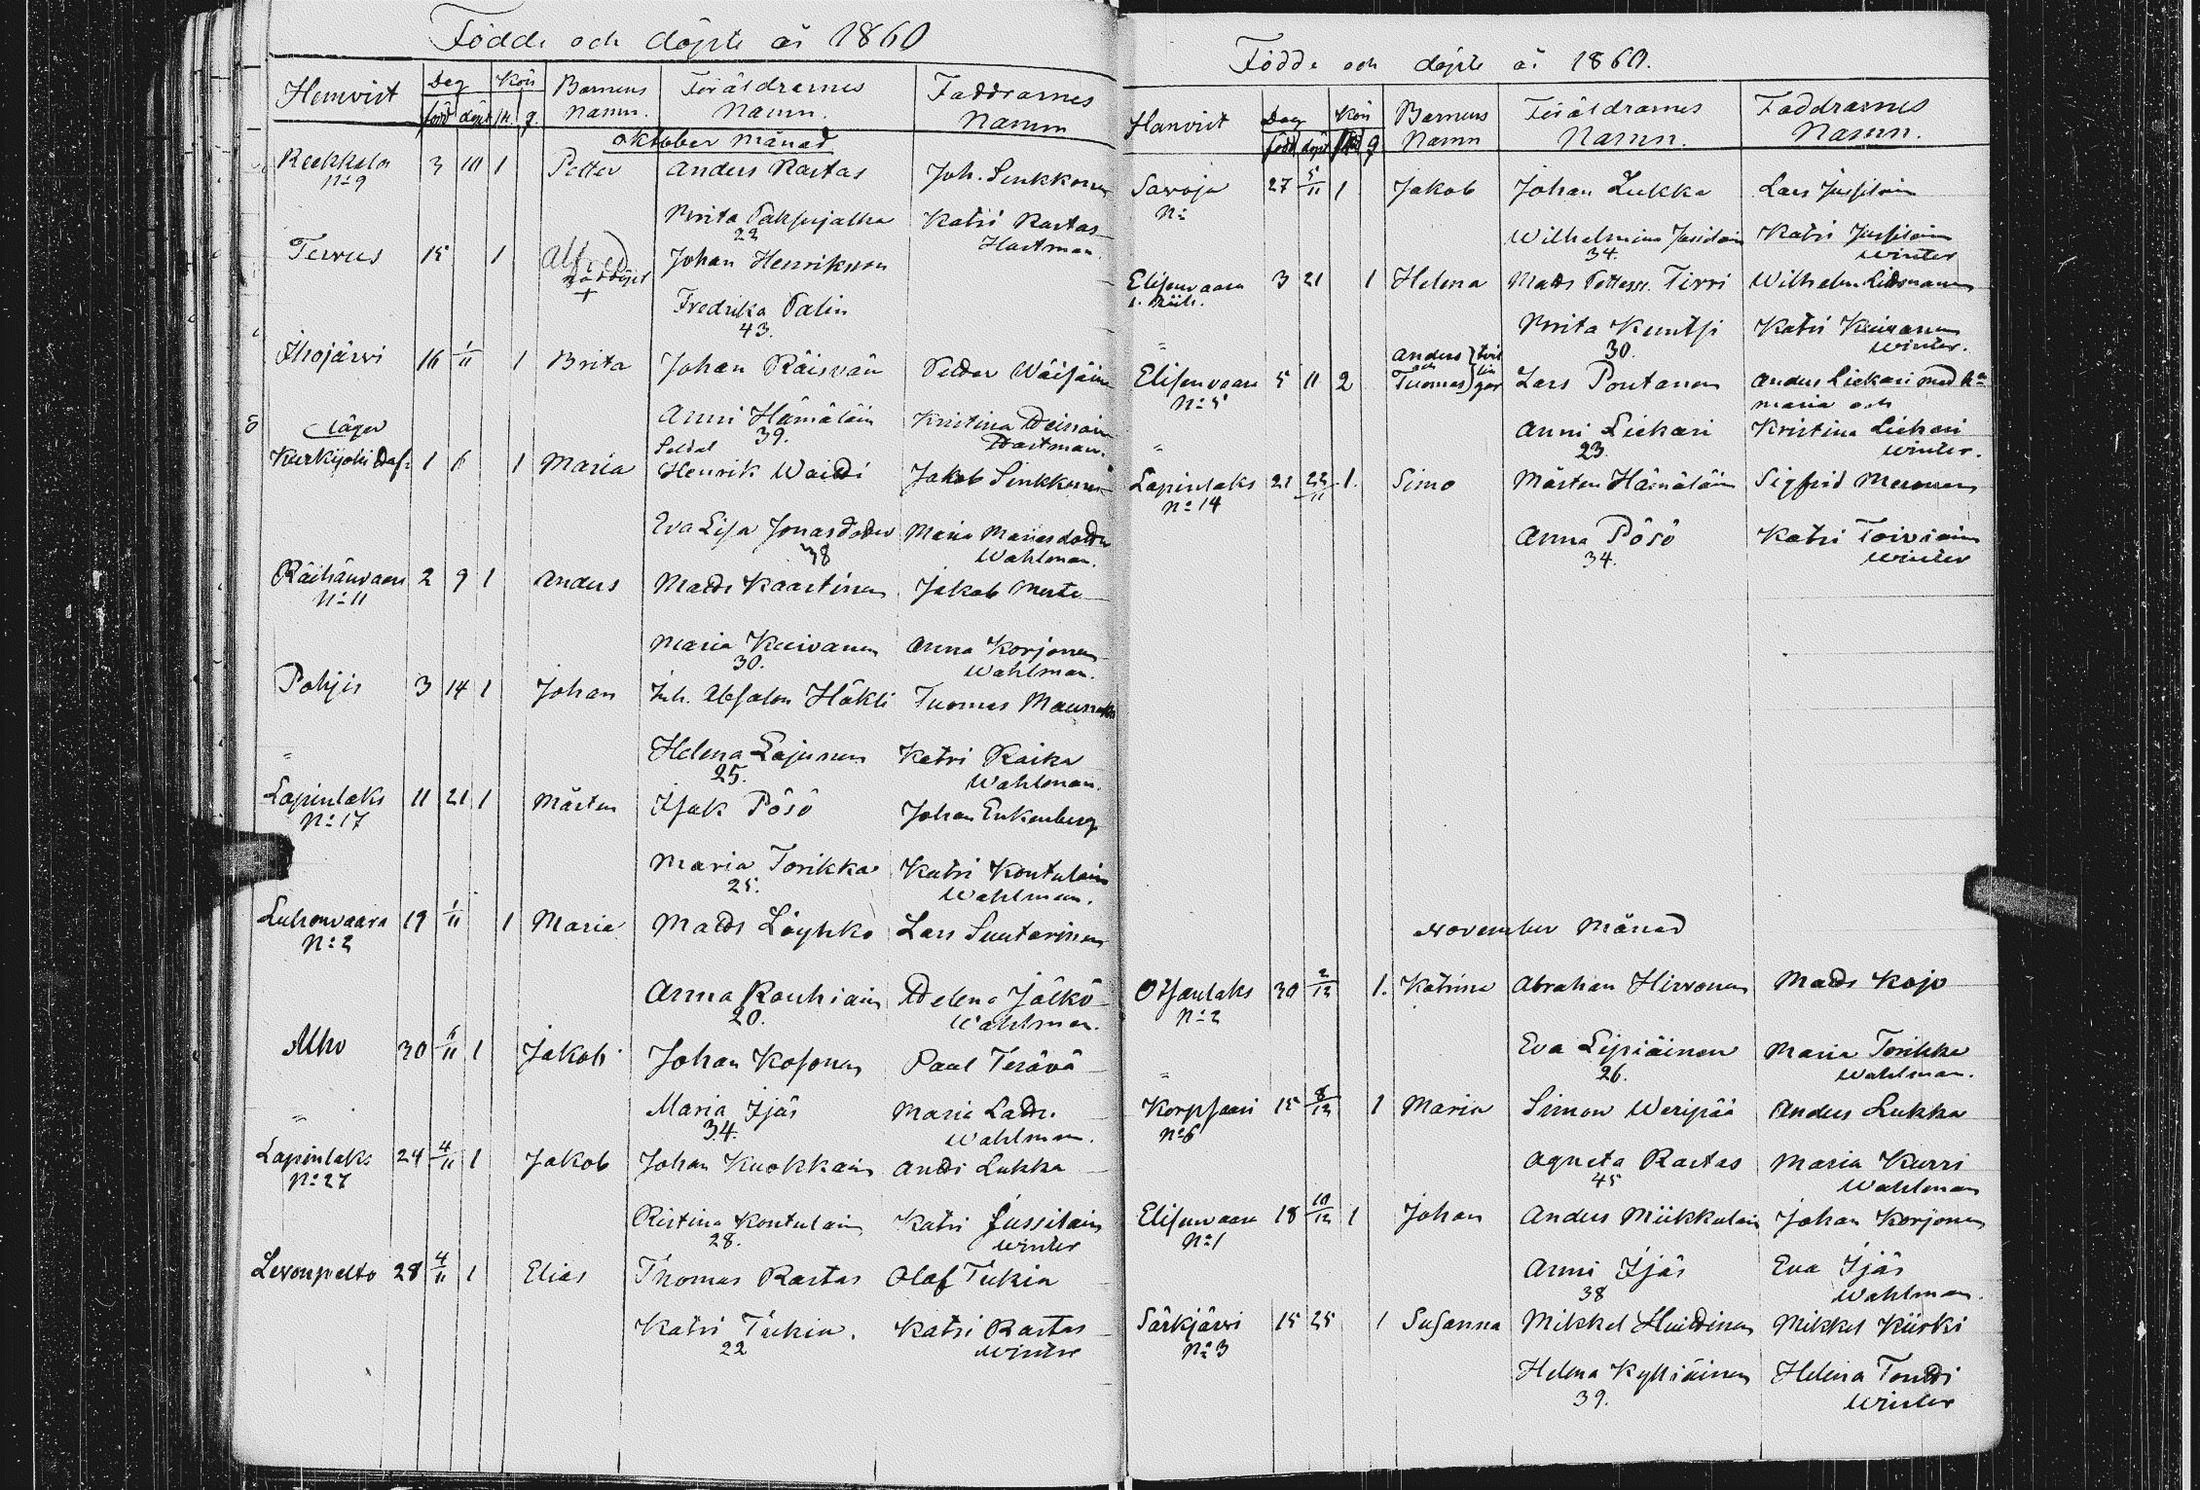 Födde och döpte år 1860
Hemvist Dag Kön Barnens Föräldrarnes Faddrarnes
född döpt m. q. namn. Namn. Namn
Oktober Månad
3 10 1 Petter Anders Rastas Joh. Sinkkonen
No 9
Brita Paksujalka Katri Rastas
22 Hartman.
Tervus 15 1 Alfred Johan Henriksson
nöddöpt
+
Fredrika Palin
43.
Ihojärvi 16 1/11 1 Brita Johan Räisvän Petter Wäisäin
Anni Hämäläin Kristina
39. Hartman.
Läger Soldat
Kurkijoki 1 6 1 Maria Henrik Waitti Jakob Sinkkonen
Eva Lisa Jonasdotter Maria
38 Wahlman.
Räihänvaara 2 9 1 Anders Matts Kaartinen Jakob
No 11
Maria Kuivanen Anna Korjonen
30. Wahlman.
Pohjis 3 14 1 Johan Joh. Absalon Häkli Tuomas
" Helena Lajunen Katri Raika
25. Wahlman.
Lapinlaks 11 21 1 Mårten Isak Pösö Johan Enkenberg
No 17
Maria Torikka Katri Kontulain
25. Wahlman.
Luhonvaara 19 1/11 1 Maria Matts Löyhkö Lars Suutarinen
No 2
Anna Rouhiain Helena Jälkö
20. Wahlman.
Alho 30 6/11 1 Jakob Johan Kosonen Paul Terävä
" Maria Ijäs Maria
34. Wahlman.
Lapinlaks 24 4/11 1 Jakob Johan Kuokkain Anders Lukka
No 27
Ristina Kontulain Katri Jussilain
28. Winter
Levonpelto 28 4/11 1 Elias Thomas Rastas Olaf Tukia
Katri Tukia. Katri Rastas
22 Winter
Födde och döpte år 1860.
Hemvist Dag Kön Barnens Föräldrarnes Faddrarnes
född döpt q Namn Namn. Namn.
Savoja 27 5/11 1 Jakob Johan Lukka Lars Jussilain
No
Wilhelmina Jussilain Katri Jussilain
34. Winter
Elisenvaara 3 21 1 Helena Matts Petterss. Tirri Wilhelm
Brita Kuntsi Katri Kuivanen
" 30. Winter.
Elisenvaara 5 11 2 Anders och Tuomas tvillingar Lars Pontanen Anders Liekari med h:u
No 5 Maria och
" Anni Liekari Kristina Liekari
23. Winter.
Lapinlaks 21 22/11 1. Simo Mårten Hämäläin Sigfrid Meronen
No 14
Anna Pösö Katri Toiviain
34. Winter
November Månad
Otsanlaks 30 2/12 1. Katrina Abraham Hirvonen Matts Kojo
No 2
" Eva Lipiäinen Maria Torikka
26. Wahlman.
Korpsaari 15 8/12 1 Maria Simon Weripää Anders Lukka
No 6
Agneta Rastas Maria Kurri
45 Wahlman
Elisenvaara 18 10/12 1 Johan Anders Miikkulain Johan Korjonen
No 1
Anni Ijäs Eva Ijäs
38 Wahlman.
Särkjärvi 15 25 1 Susanna Mikkel Huittinen Mikkel Kiiski
No 3
Helena Kylliäinen Helena Tontti
39. Winter